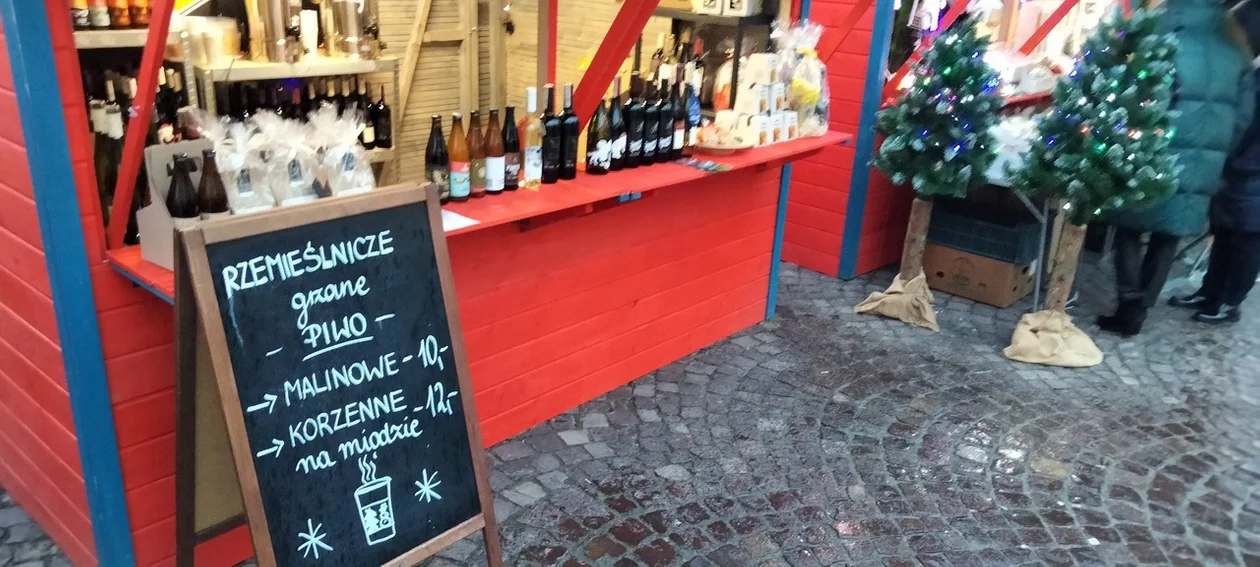 RZEMIEŚLNICZE
grzane
- PIWO -
→ MALINOWE - 10,-
→ KORZENNE - 12,-
na miodzie